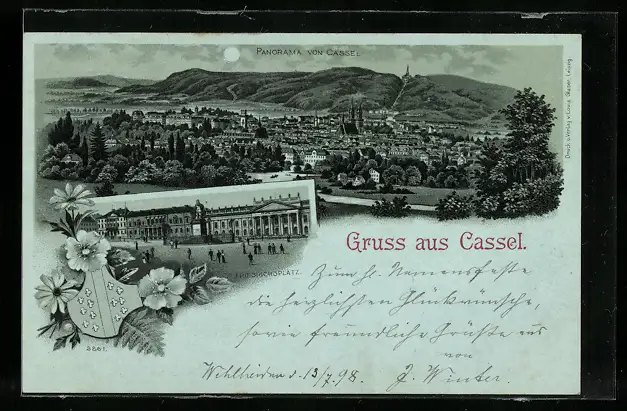 PANORAMA VON CASSEL.
Druck u. Verlag v. Louis Glaser, Leipzig.
FRIEDRICHSPLATZ.
Gruss aus Cassel.
Zum hl. Namensfeste
die herzlichsten Glückwünsche,
sowie freundliche Grüße aus
von
Wehlheiden d. 13/7. 98. J. Winter.
3661.